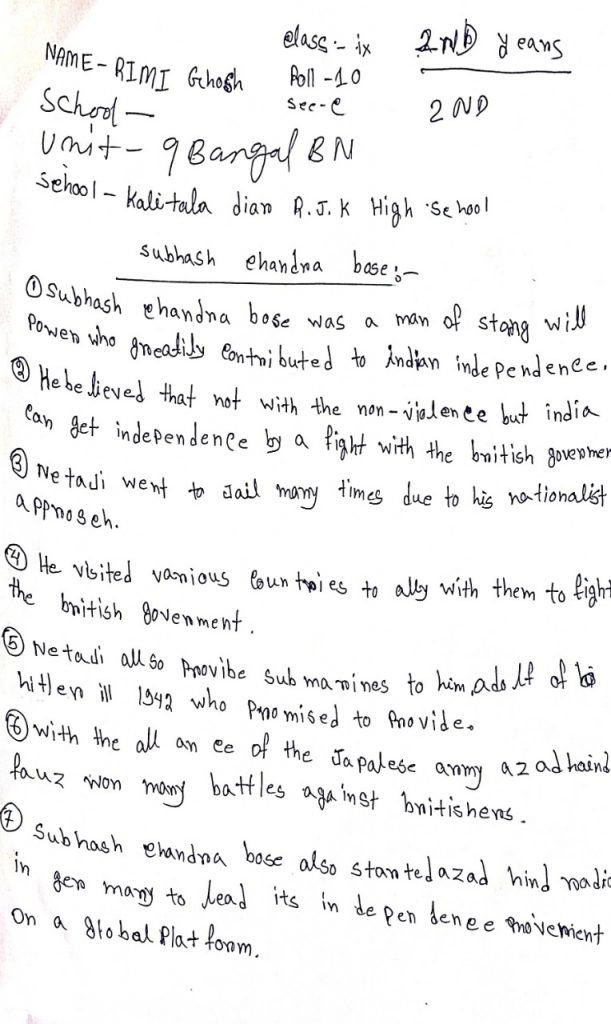 class :- ix
2ND years
NAME - RIMI Ghosh
Roll - 10
School —
sec - c
2 ND
Unit - 9 Bangal BN
School - Kali-tala dian R.J.K High School
subhash chandra bose :-
① Subhash chandra bose was a man of stong will
Power who greatily contributed to indian independence.
② He believed that not with the non-violence but india
can get independence by a fight with the british govenmen
③ Netaji went to Jail many times due to his nationalist
approseh.
④ He visited various countries to ally with them to fight
the british govenment.
⑤ Netaji allso Provibe submarines to him adolf of
hitler ill 1942 who promised to Provide.
⑥ with the all an ce of the Japalese army azad haind
fauz won many battles against britishers.
⑦ Subhash chandra bose also started azad hind radio
in ger many to lead its in de pen dence movement
On a global Plat form.